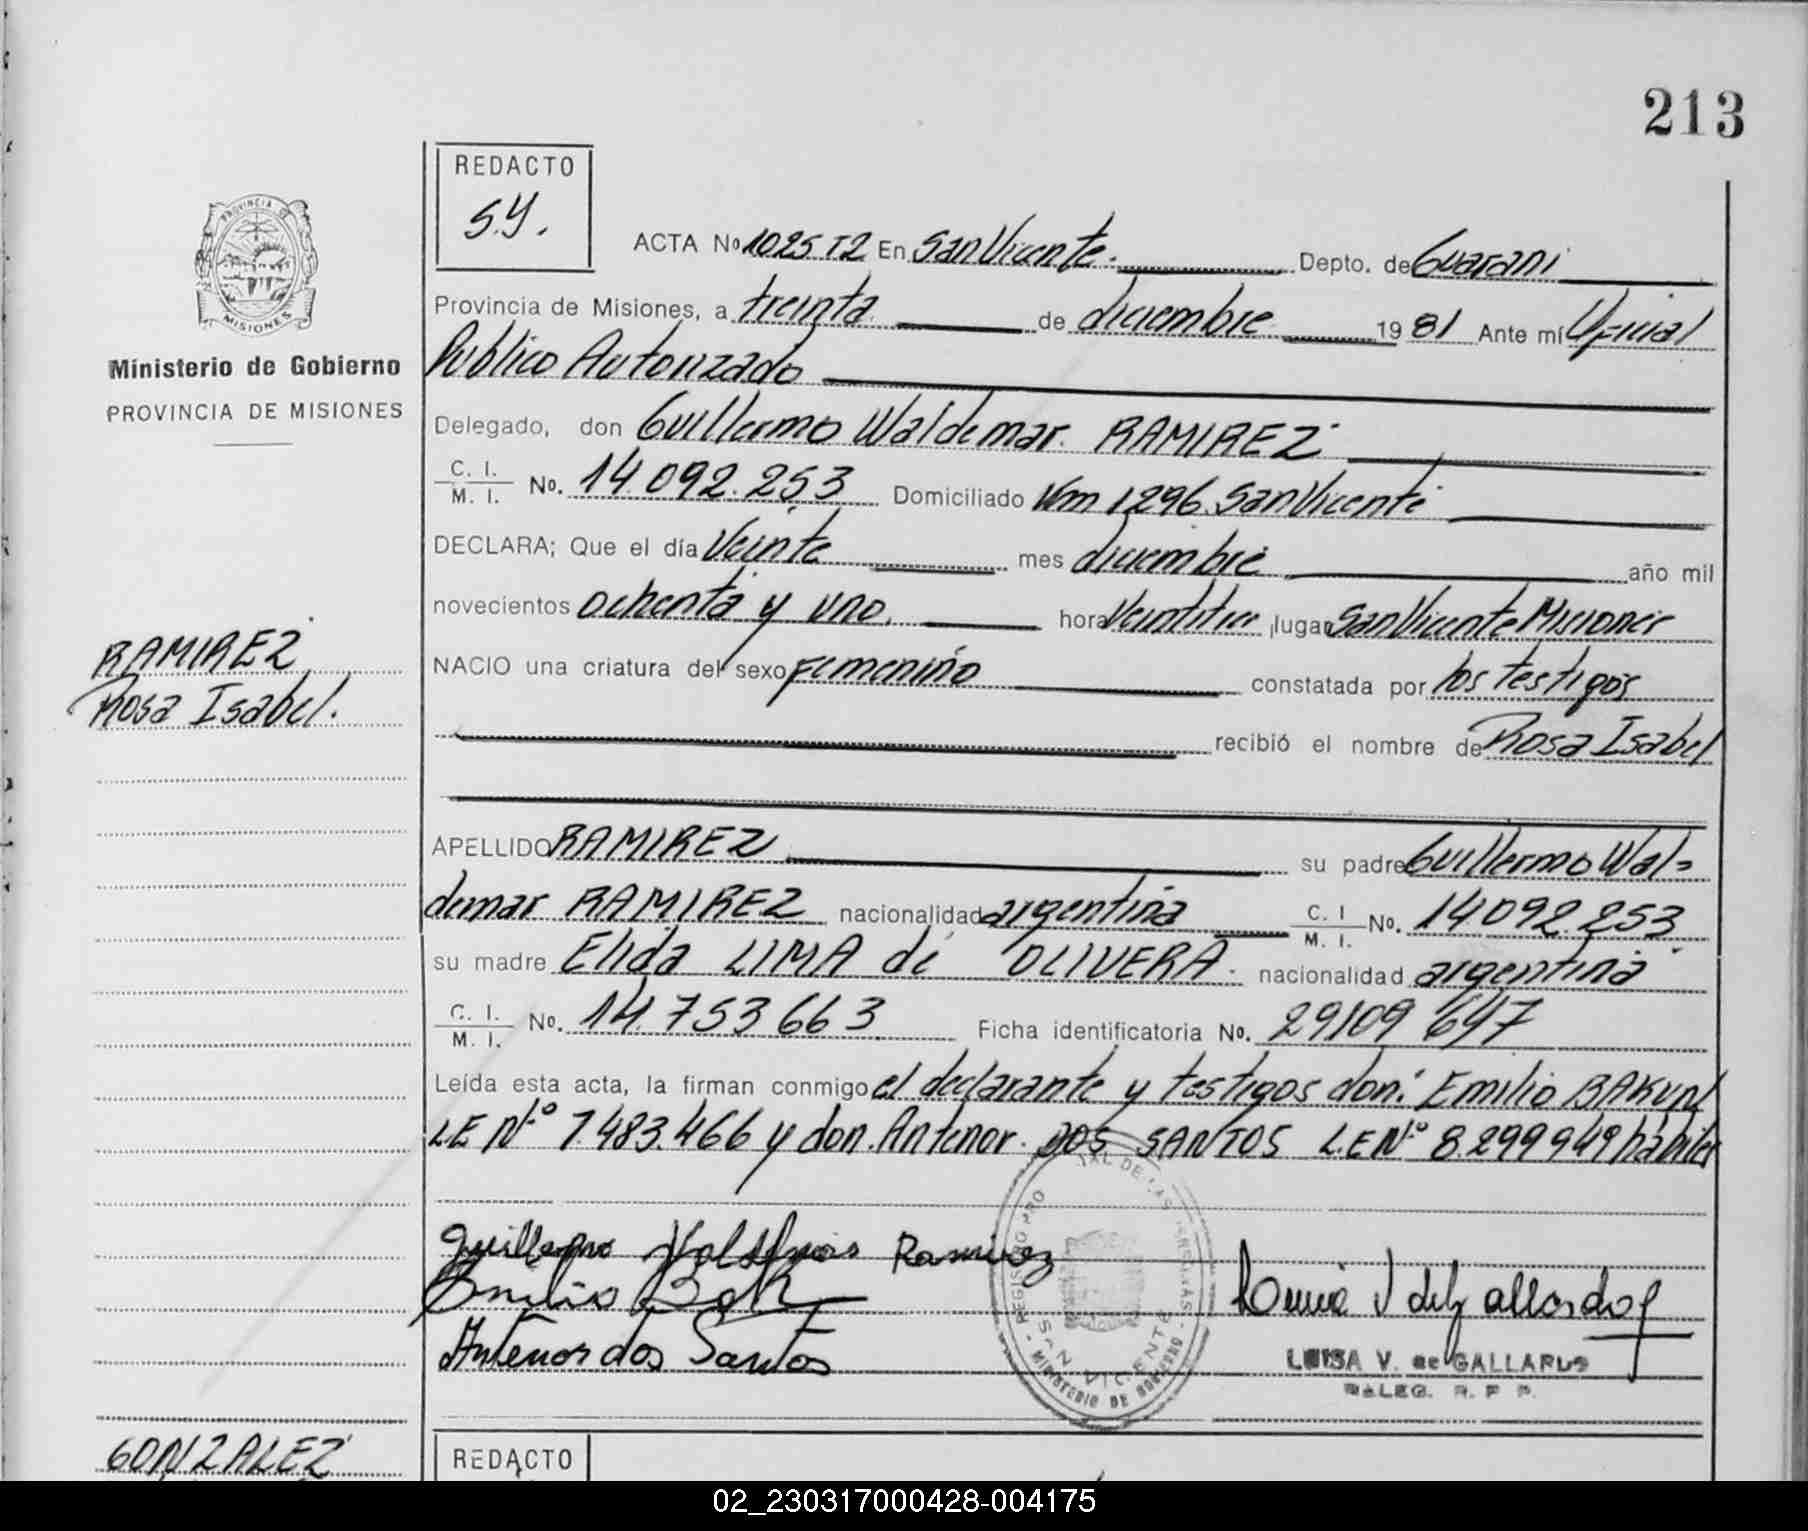 213
REDACTO
S.Y.
PROVINCIA DE
MISIONES
Ministerio de Gobierno
PROVINCIA DE MISIONES
ACTA No 1025 T2 En San Vicente. Depto. de Guarani
Provincia de Misiones, a treinta de diciembre 1981 Ante mí Oficial
Publico Autorizado
Delegado, don Guillermo Waldemar RAMIREZ
C. I.
M. I. No. 14.092.253 Domiciliado Km 1296 San Vicente
DECLARA; Que el día Veinte mes diciembre año mil
novecientos ochenta y uno. hora Veintitres lugar San Vicente Misiones
RAMIREZ
Rosa Isabel.
NACIO una criatura del sexo femenino constatada por los testigos
recibió el nombre de Rosa Isabel
APELLIDO RAMIREZ su padre Guillermo Wal-
demar RAMIREZ nacionalidad argentina C. I. M. I. No. 14.092.253
su madre Elida LIMA de OLIVERA. nacionalidad argentina
C. I.
M. I. No. 14.753.663 Ficha identificatoria No. 29109647
Leída esta acta, la firman conmigo el declarante y testigos don: Emilio BAKUN
L.E Nº 7.483.466 y don. Antenor. DOS SANTOS L.E Nº 8.299949 hábiles
Guillermo Valdemar Ramirez
Emilio Bak
Antenor dos Santos
SAN VICENTE
MINISTERIO DE GOBIERNO
LUISA V. de GALLARDO
DELEG. R. P. P.
GONZALEZ
REDACTO
02_230317000428-004175